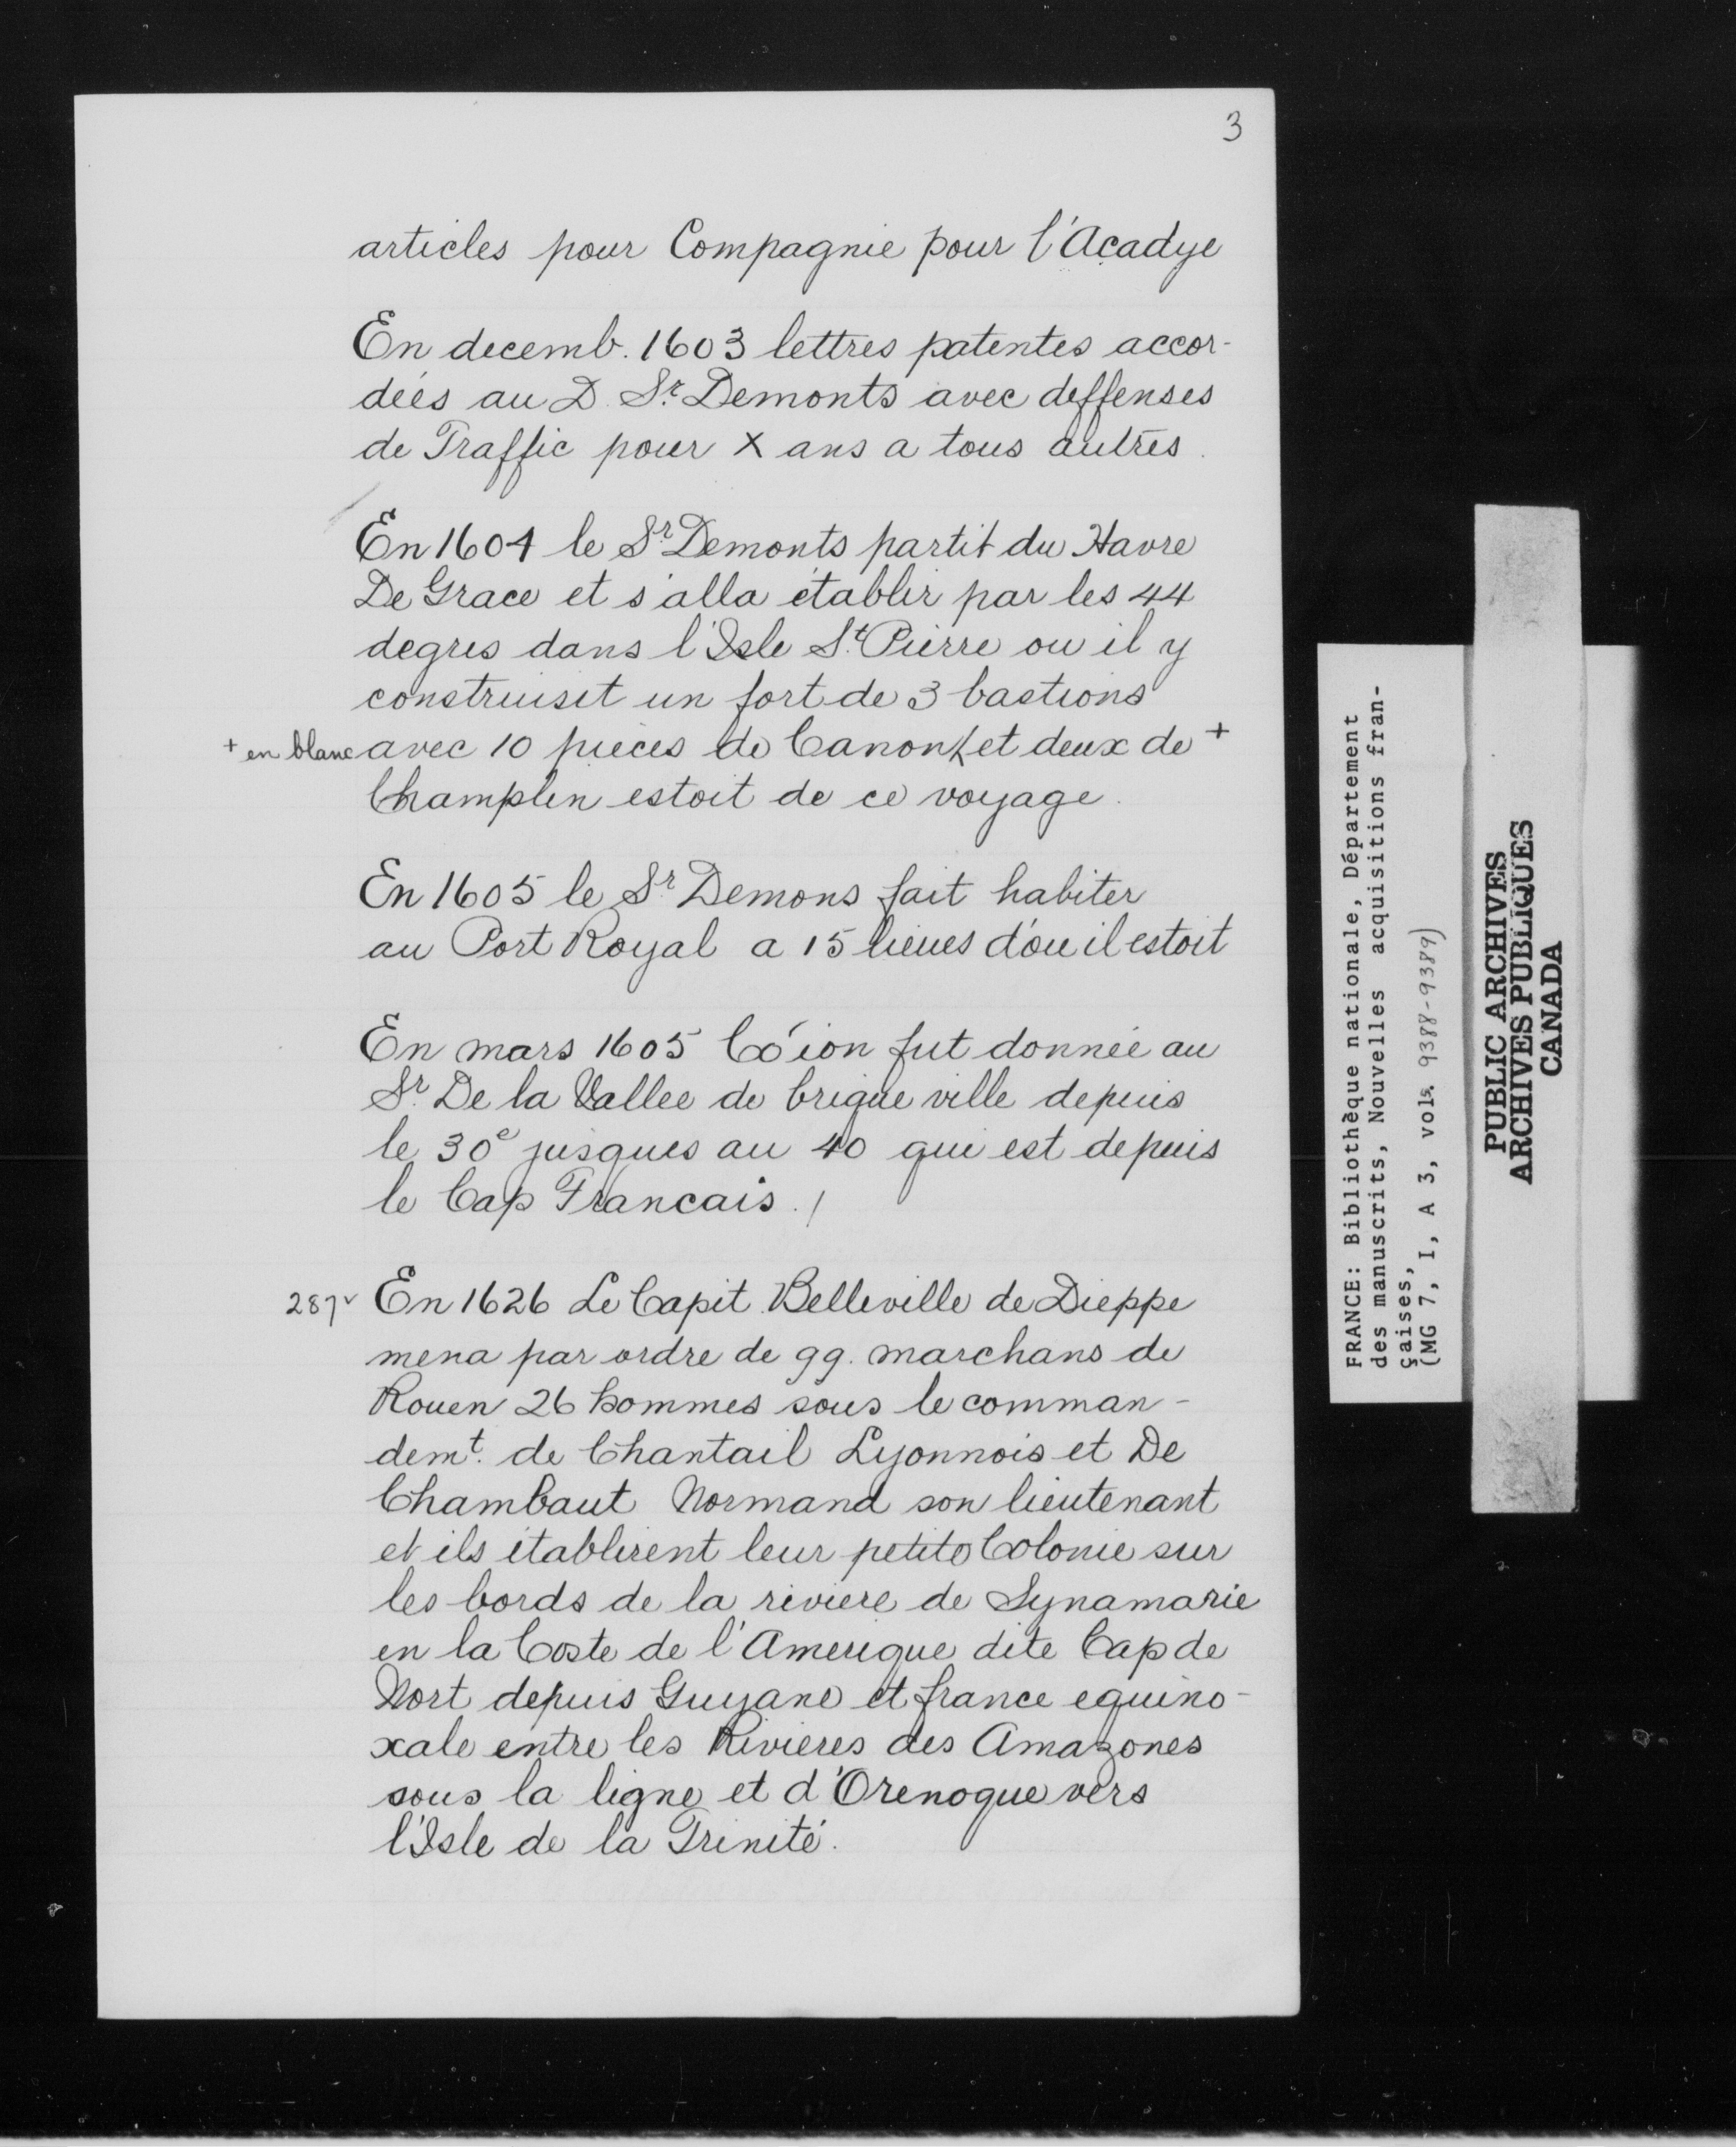 3
articles pour Compagnie pour l'Acadye
En decemb. 1603 lettres patentes accor-
deés au D. Sr. Demonts avec deffenses
de Traffic pour X ans a tous autres.
En 1604 le Sr. Demonts partit du Havre
De Grace et s'alla établir par les 44
degres dans l'Isle St. Pierre ou il y
construisit un fort de 3 bastions
+ en blanc avec 10 pieces de Canon et deux de +
Champlin estoit de ce voyage.
En 1605 le Sr. Demons fait habiter
au Port Royal a 15 lieues d'ou il estoit
En mars 1605 Co'ion fut donnée au
Sr. De la Vallee de brique ville depuis
le 30e jusques au 40 qui est depuis
le Cap Francais.
287v En 1626 Le Capit. Belleville de Dieppe
mena par ordre de qq. marchans de
Rouen 26 hommes sous le comman-
demt. de Chantail Lyonnois et De
Chambaut Normand son lieutenant
et ils établirent leur petite Colonie sur
les bords de la riviere de Synamarie
en la Coste de l'Amerique dite Cap de
Nort depuis Guyane et france equino-
xale entre les Rivieres des Amazones
sous la ligne et d'Orenoque vers
l'Isle de la Trinité.
FRANCE: Bibliothèque nationale, Département
des manuscrits, Nouvelles acquisitions fran-
çaises,
(MG 7, I, A 3, vols. 9388-9389)
PUBLIC ARCHIVES
ARCHIVES PUBLIQUES
CANADA